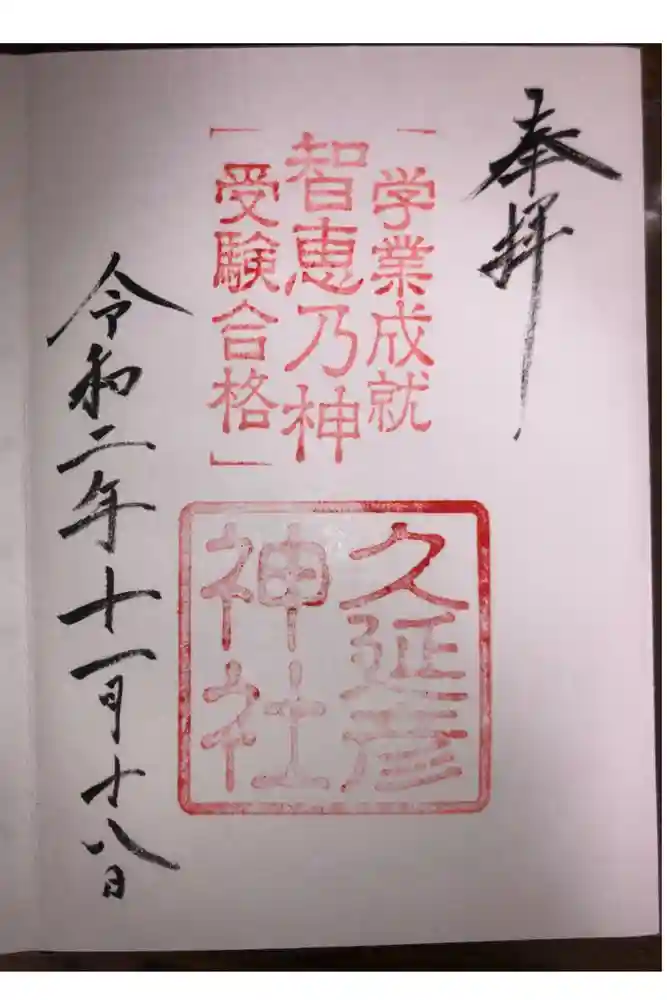 奉拝
学業成就
智恵乃神
受験合格
久延彦
神社
令和二年十一月十八日